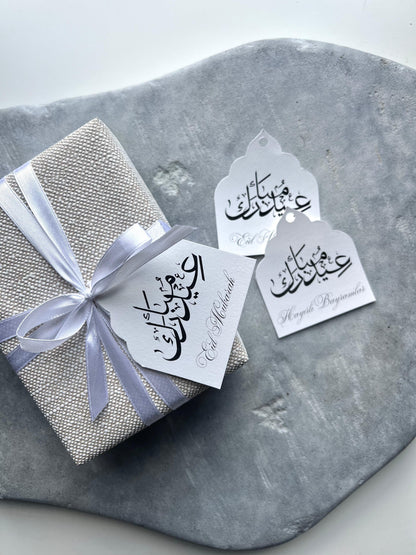 عيد مبارك
Eid Mubarak
عيد مبارك
Eid M
عيد مبارك
Hayırlı Bayramlar